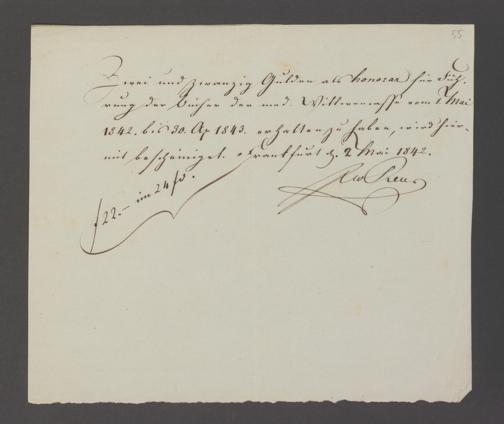 55
Zwei und zwanzig Gulden als honorar für Füh-
rung der Bücher der med. Wittwencasse vom 1 Mai
1842. bis 30. Ap 1843. erhalten zu haben, wird hier-
mit bescheiniget. Frankfurt d. 2 Mai 1842.
f 22.– im 24 f